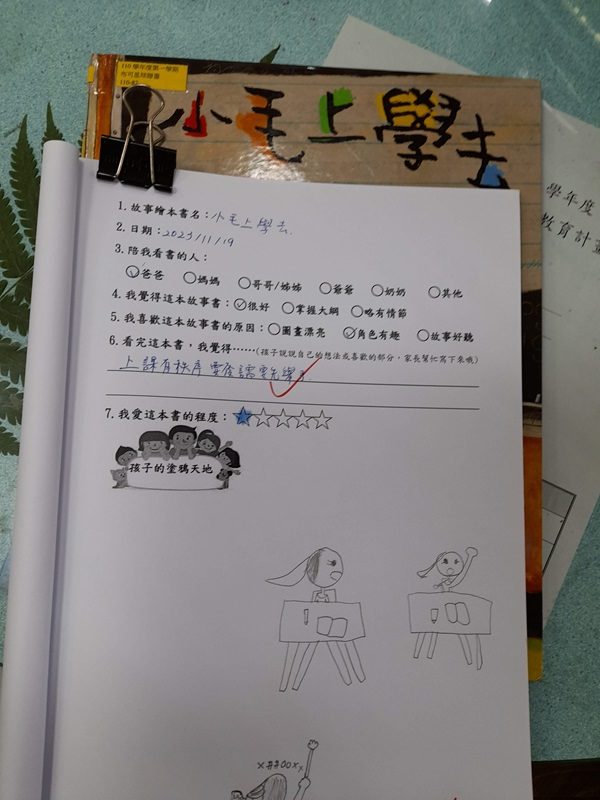 110學年度第一學期
布可星球贈書
110-62
小毛上學去
學年度
教育計畫
1.故事繪本書名：小毛上學去.
2.日期：2023/11/19
3.陪我看書的人：
爸爸 媽媽 哥哥/姊姊 爺爺 奶奶 其他
4.我覺得這本故事書：很好 掌握大綱 略有情節
5.我喜歡這本故事書的原因：圖畫漂亮 角色有趣 故事好聽
6.看完這本書，我覺得……(孩子說說自己的想法或喜歡的部分，家長幫忙寫下來哦)
上課有秩序要
7.我愛這本書的程度：★☆☆☆☆
孩子的塗鴉天地